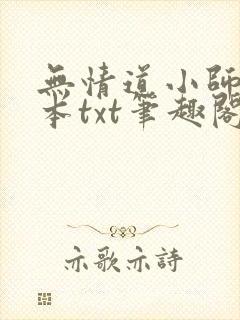 無情道小師
本txt筆趣閣
亦歌亦詩